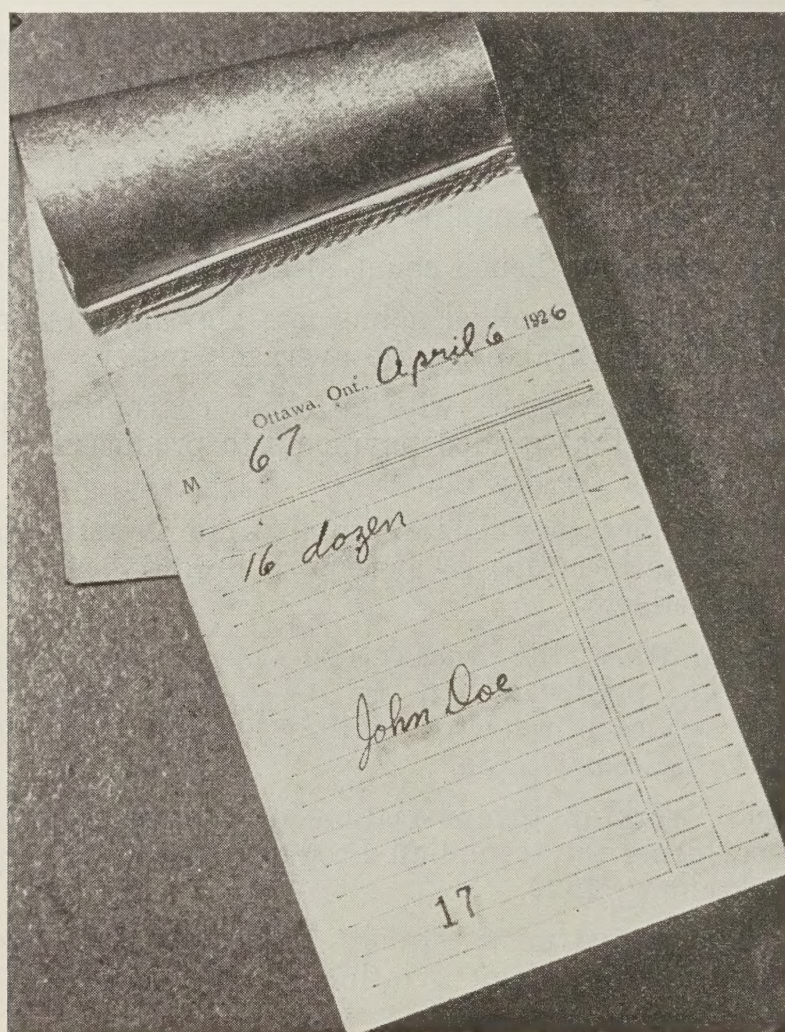 Ottawa, Ont., April 6 1926
M 67
16 dozen
John Doe
17